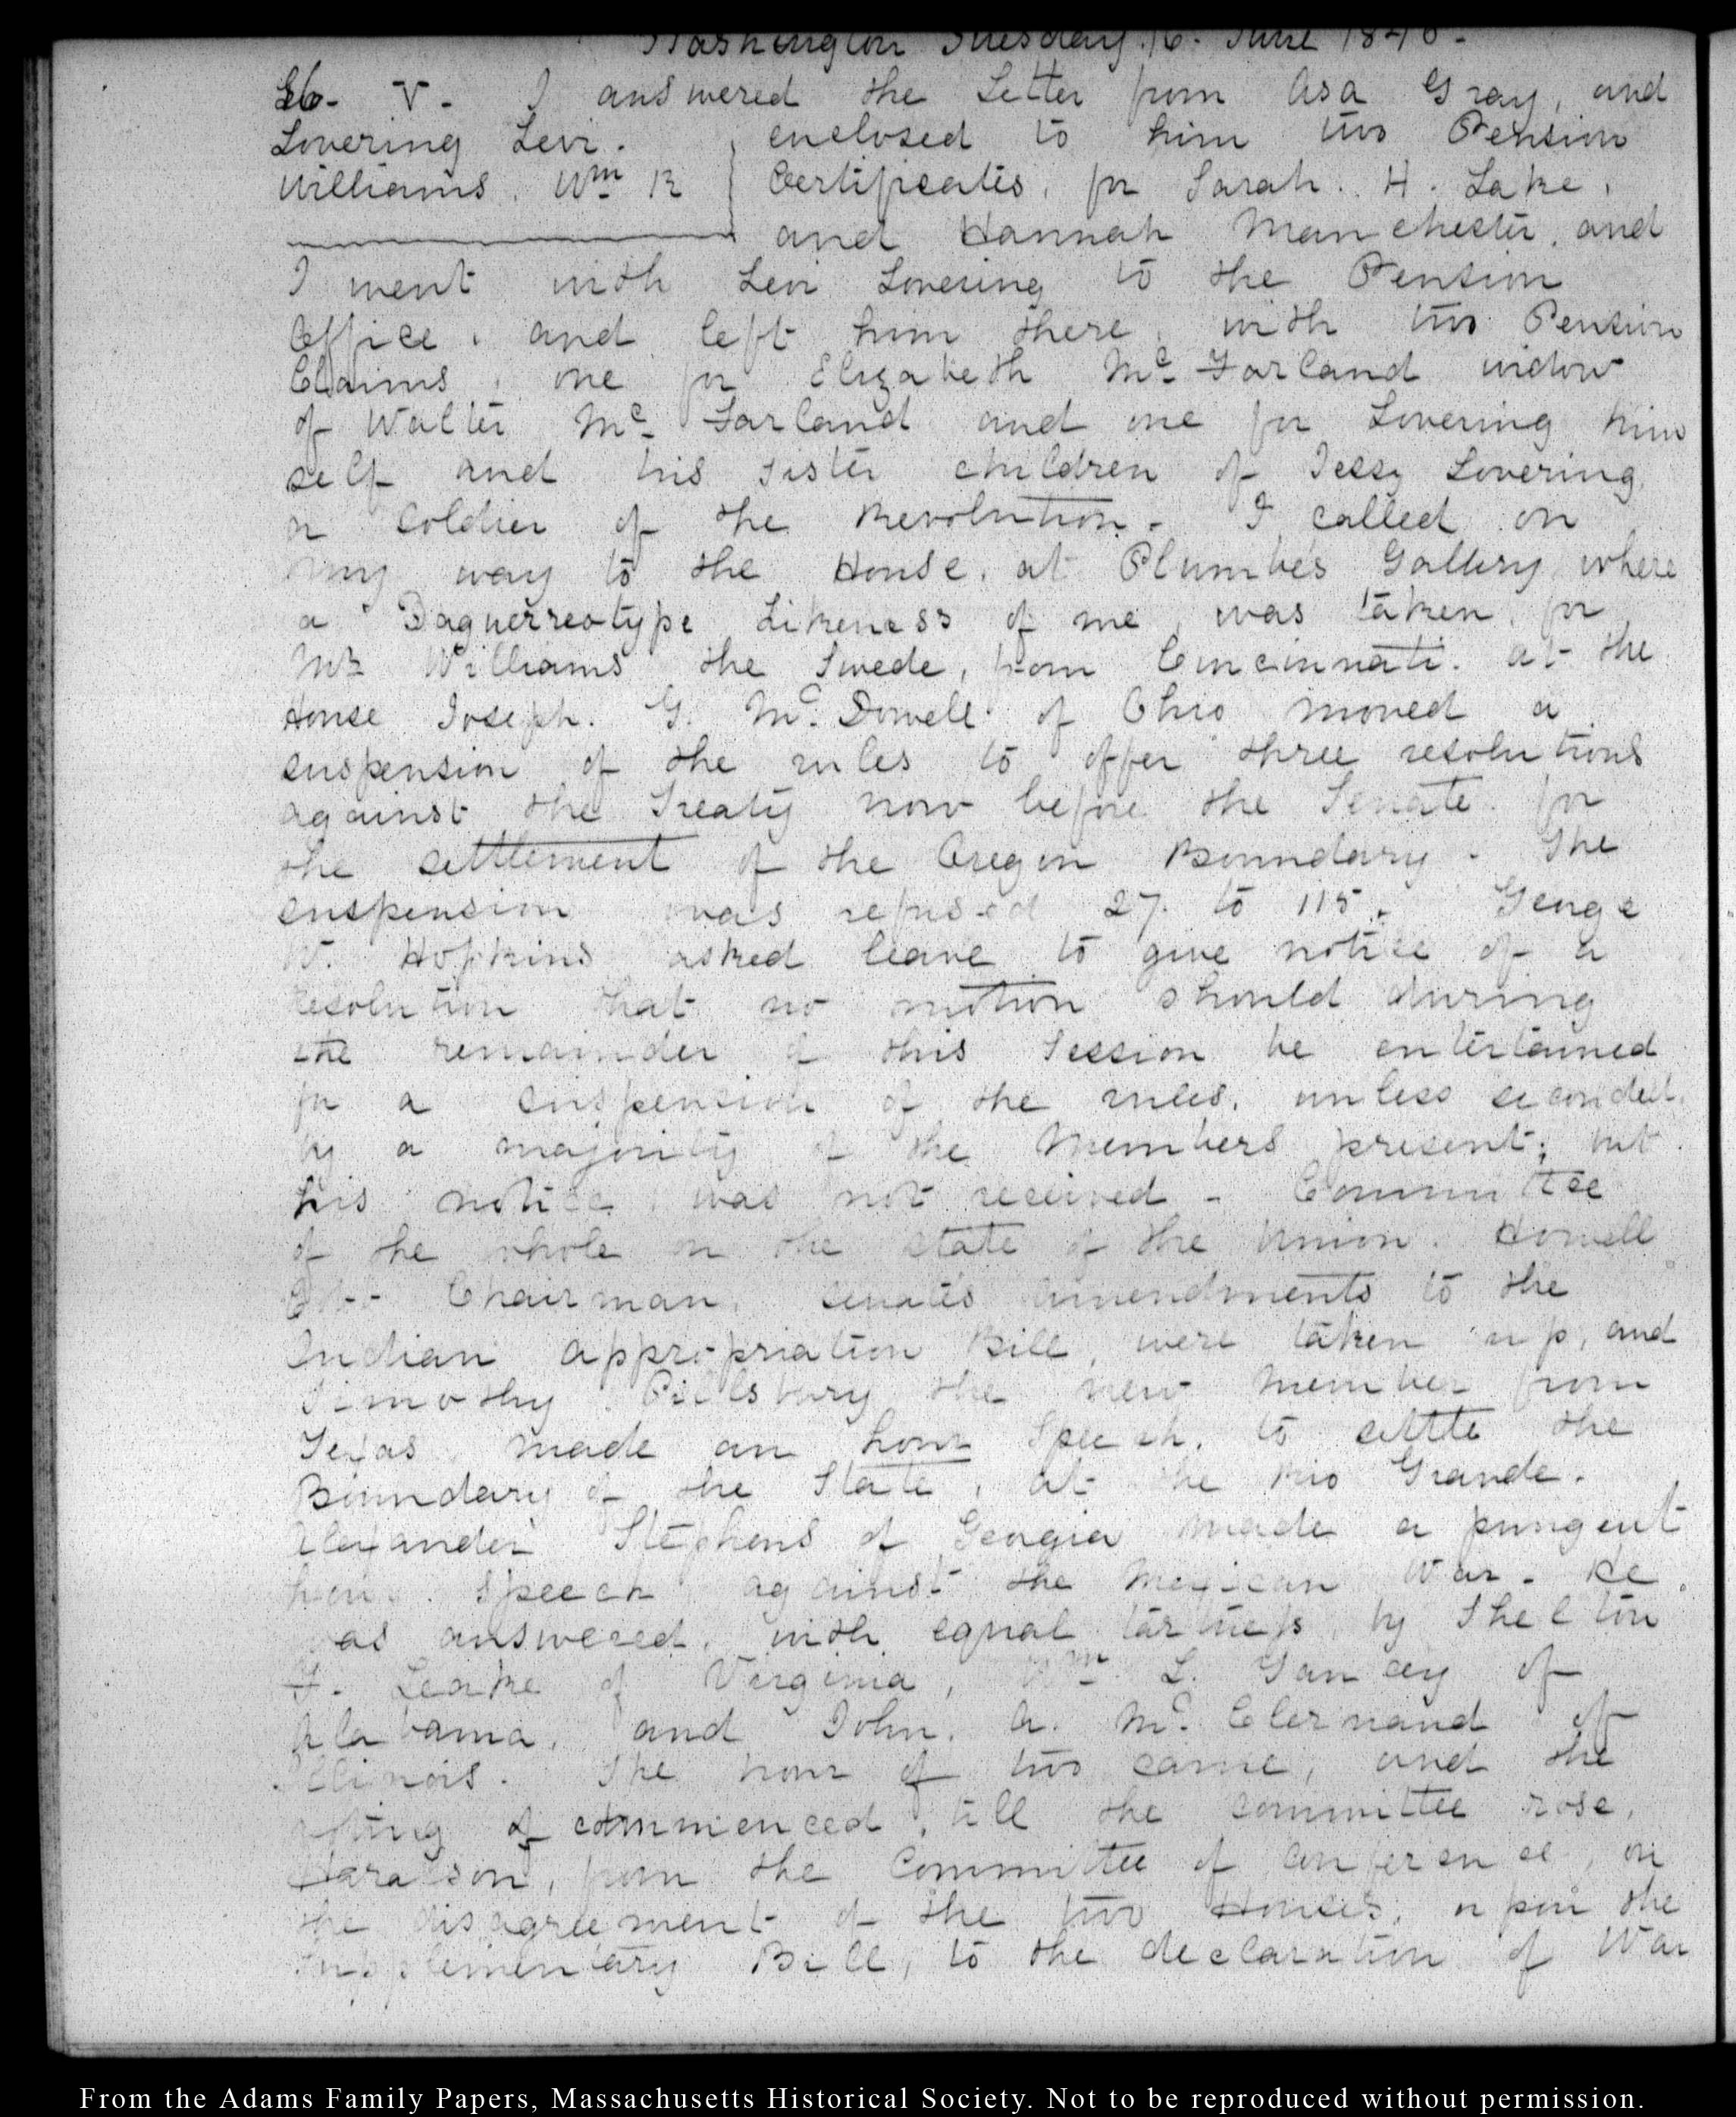 Washington Tuesday 16. June 1846-
16- V- I answered the Letter from Asa Gray, and
Lovering Levi. enclosed to him two Pension
Williams. Wm R Certificates, for Sarah. H. Lake,
and Hannah Manchester, and
I went with Levi Lovering to the Pension
Office, and left him there, with two Pension
Claims, one for Elizabeth Mc Farland widow
of Walter Mc Farland and one for Lovering him
self and his sister children of Jessy Lovering
a soldier of the Revolution. I called on
my way to the House, at Plumbe's Gallery where
a Daguerreotype Likeness of me, was taken, for
Mr Williams the Swede, from Cincinnati. at the
House Joseph. J. Mc Dowell of Ohio moved a
suspension of the rules to offer three resolutions
against the Treaty now before the Senate for
the settlement of the Oregon Boundary. The
suspension was refused 27 to 115. George
W. Hopkins asked leave to give notice of a
resolution that no motion should during
the remainder of this Session be entertained
for a suspension of the rules, unless seconded
by a majority of the Members present; but
his notice was not received - Committee
of the whole on the state of the Union. Howell
Cobb Chairman. Senate's amendments to the
Indian appropriation Bill, were taken up, and
Timothy Pillsbury the new member from
Texas made an hour Speech, to settle the
Boundary of the State, at the Rio Grande.
Alexander Stephens of Georgia made a pungent
hour speech against the Mexican War. He
was answered, with equal tartness, by Shelton
F. Leake of Virginia, Wm L. Yancey of
Alabama, and John. A. Mc Clernand of
Illinois. The hour of two came, and the
of commenced, till the committee rose.
Haralson, from the Committee of conference, on
the disagreement of the two Houses, upon the
supplementary Bill, to the declaration of War
From the Adams Family Papers, Massachusetts Historical Society. Not to be reproduced without permission.